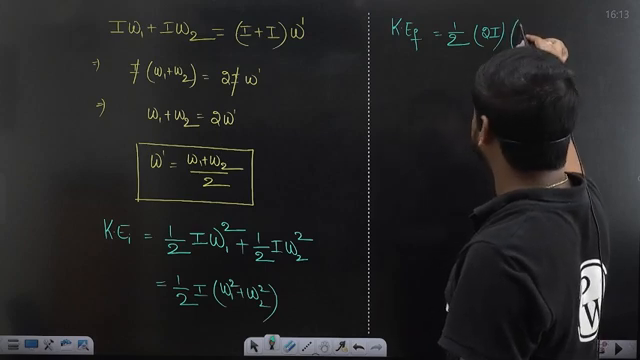 Iω₁ + Iω₂ = (I + I) ω'
⇒ I (ω₁+ω₂) = 2I ω'
⇒ ω₁ + ω₂ = 2ω'
ω' = (ω₁+ω₂)/2
K·Eᵢ = 1/2 Iω₁² + 1/2 Iω₂²
= 1/2 I (ω₁² + ω₂²)
16:13
K·E_f = 1/2 (2I) (
P
W